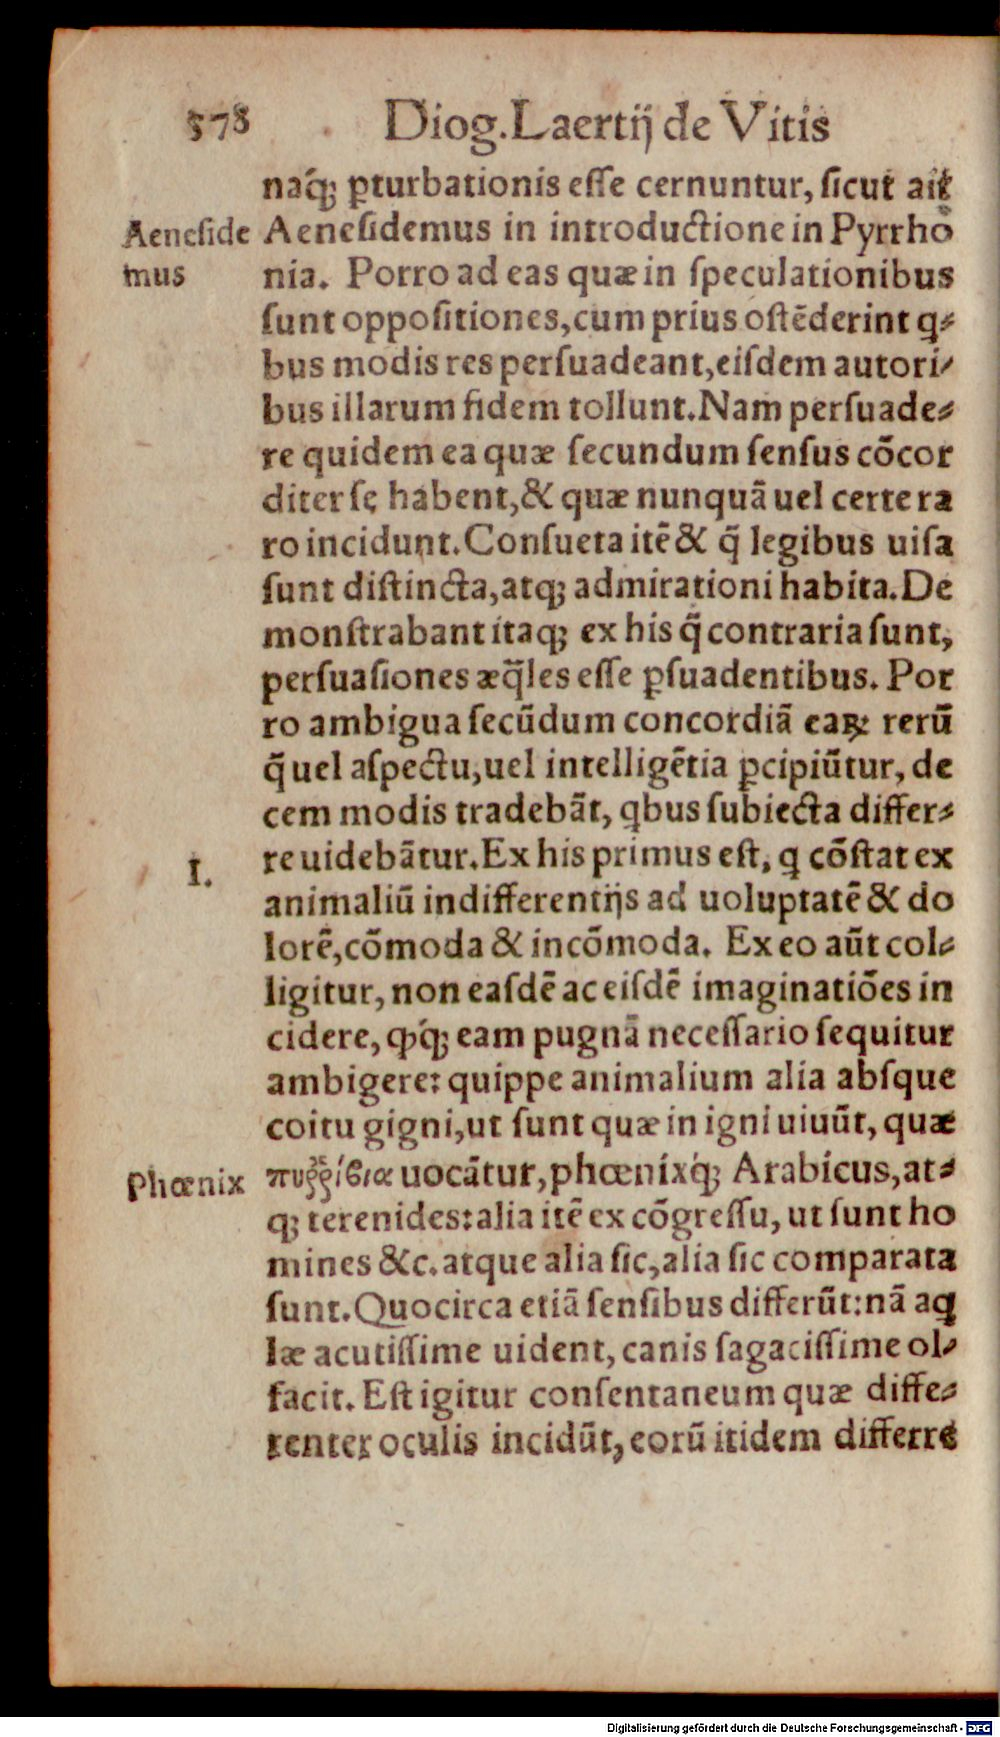 578 Diog. Laertij de Vitis
naq́; ꝑturbationis eſſe cernuntur, ſicut ait
Aeneſide
mus
Aeneſidemus in introductione in Pyrrhõ
nia. Porro ad eas quæ in ſpeculationibus
ſunt oppoſitiones, cum prius oſtẽderint ꝗ⸗
bus modis res perſuadeant, eiſdem autori⸗
bus illarum fidem tollunt. Nam perſuade⸗
re quidem ea quæ ſecundum ſenſus cõcor
diter ſę habent, & quæ nunquã uel certe ra
ro incidunt. Conſueta itẽ & q̃ legibus uiſa
ſunt diſtincta, atq; admirationi habita. De
monſtrabant itaq; ex his q̃ contraria ſunt,
perſuaſiones æq̃les eſſe ꝑſuadentibus. Por
ro ambigua ſecũdum concordiã eaꝝ rerũ
q̃ uel aſpectu, uel intelligẽtia ꝑcipiũtur, de
cem modis tradebãt, ꝗbus ſubiecta differ⸗
I.
re uidebãtur. Ex his primus eſt, ꝗ cõſtat ex
animaliũ indifferentijs ad uoluptatẽ & do
lorẽ, cõmoda & incõmoda. Ex eo aũt col⸗
ligitur, non eaſdẽ ac eiſdẽ imaginatiões in
cidere, ꝙq́; eam pugnã neceſſario ſequitur
ambigere: quippe animalium alia absque
coitu gigni, ut ſunt quæ in igni uiuũt, quæ
Phœnix
πυρρίβια uocãtur, phœnixq́; Arabicus, at⸗
q; terenides: alia itẽ ex cõgreſſu, ut ſunt ho
mines &c. atque alia ſic, alia ſic comparata
ſunt. Quocirca etiã ſenſibus differũt: nã aꝗ
læ acutiſſime uident, canis ſagaciſſime ol⸗
facit. Eſt igitur conſentaneum quæ diffe⸗
renter oculis incidũt, eorũ itidem differre
Digitalisierung gefördert durch die Deutsche Forschungsgemeinschaft - DFG